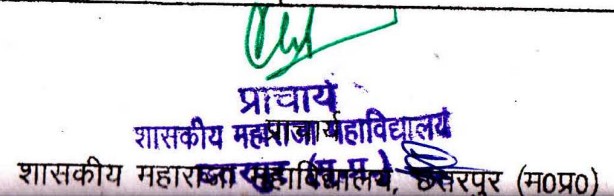 प्राचार्य
शासकीय महाराजा महाविद्यालय
प्राचार्य
छतरपुर (म.प्र.)
शासकीय महाराजा महाविद्यालय, छतरपुर (म0प्र0)